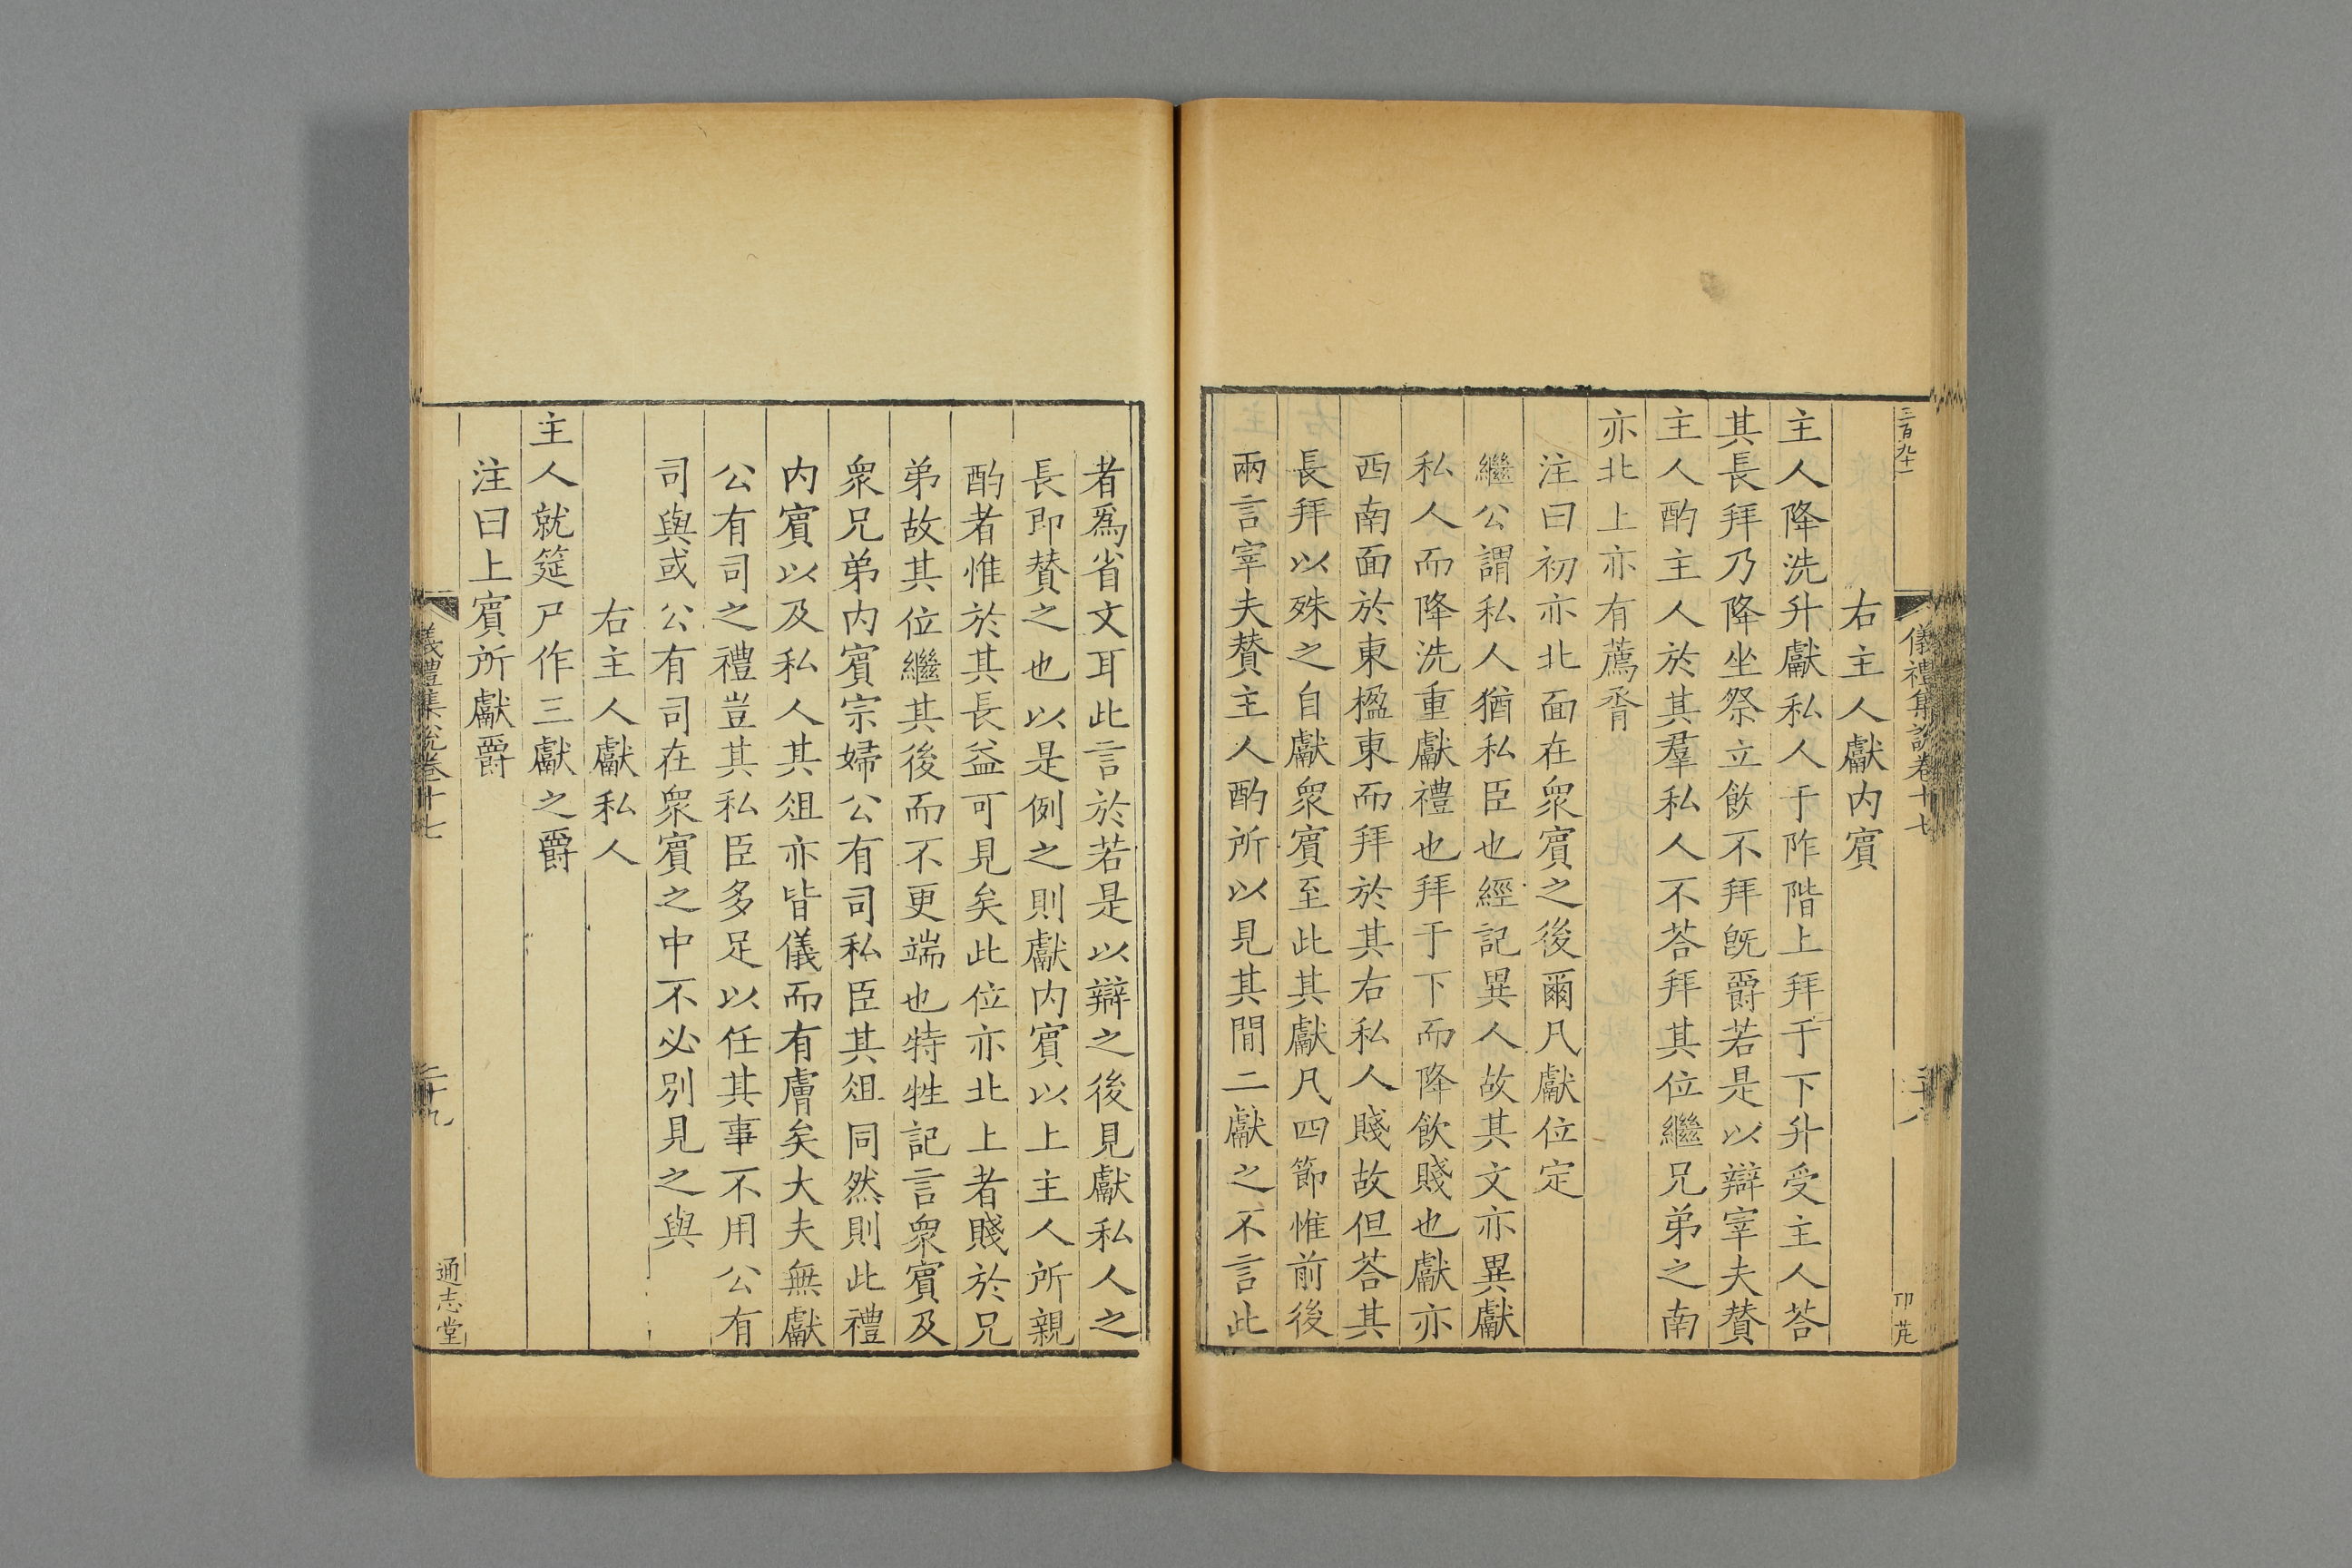 三百九十一
儀禮集說卷十七
卬芃
右主人獻内賔
主人降洗升獻私人于阼階上拜于下升受主人荅
其長拜乃降坐祭立飲不拜旣爵若是以辯宰夫贊
主人酌主人於其羣私人不荅拜其位繼兄弟之南
亦北上亦有薦脀
注曰初亦北面在衆賔之後爾凡獻位定
繼公謂私人猶私臣也經記異人故其文亦異獻
私人而降洗重獻禮也拜于下而降飲賤也獻亦
西南面於東楹東而拜於其右私人賤故但荅其
長拜以殊之自獻衆賔至此其獻凡四節惟前後
兩言宰夫贊主人酌所以見其間二獻之不言此
者爲省文耳此言於若是以辯之後見獻私人之
長即贊之也以是例之則獻内賔以上主人所親
酌者惟於其長益可見矣此位亦北上者賤於兄
弟故其位繼其後而不更端也特牲記言衆賔及
衆兄弟内賔宗婦公有司私臣其俎同然則此禮
内賔以及私人其俎亦皆儀而有膚矣大夫無獻
公有司之禮豈其私臣多足以任其事不用公有
司與或公有司在衆賔之中不必別見之與
右主人獻私人
主人就筵尸作三獻之爵
注曰上賔所獻爵
儀禮集說卷十七
二十九
通志堂